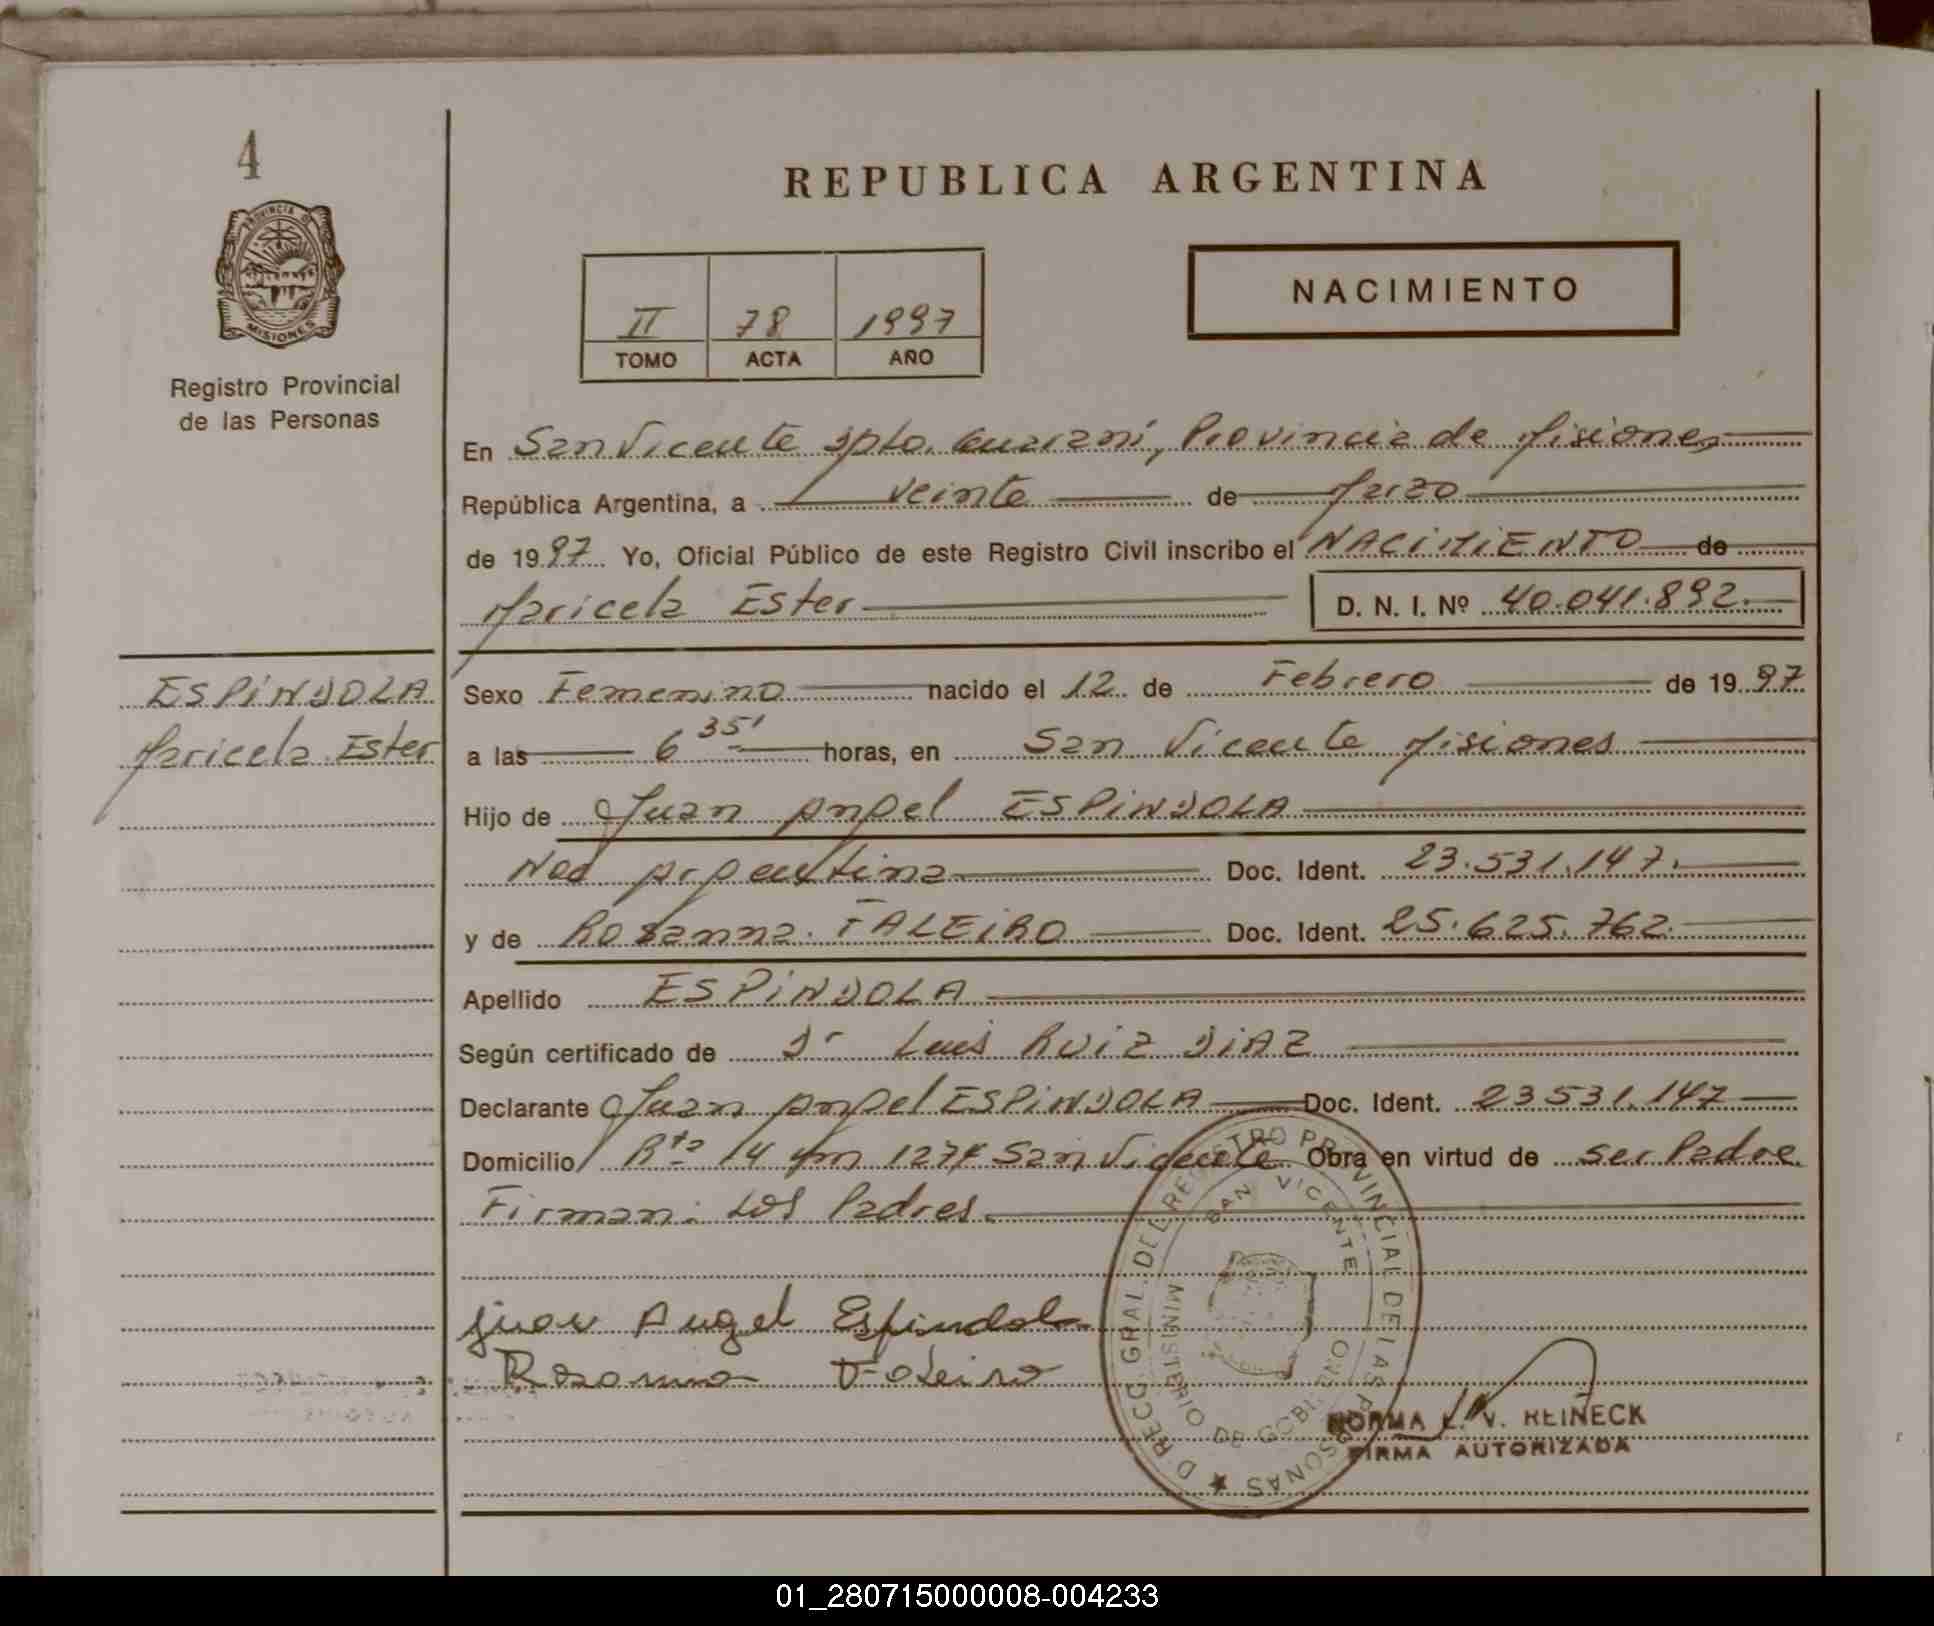 4
PROVINCIA DE
MISIONES
Registro Provincial
de las Personas
REPUBLICA ARGENTINA
II 78 1997
TOMO ACTA AÑO
NACIMIENTO
En San Vicente Dpto. Guaraní, Provincia de Misiones
República Argentina, a veinte de Marzo
de 1997 Yo, Oficial Público de este Registro Civil inscribo el NACIMIENTO de
Maricela Ester D. N. I. Nº 40.041.892.
ESPINDOLA
Maricela Ester
Sexo Femenino nacido el 12 de Febrero de 1997
a las 6 35' horas, en San Vicente Misiones
Hijo de Juan Angel ESPINDOLA
Nac Argentina Doc. Ident. 23.531.147.
y de Rosanna FALEIRO Doc. Ident. 25.625.762.
Apellido ESPINDOLA
Según certificado de Dr Luis RUIZ DIAZ
Declarante Juan Angel ESPINDOLA Doc. Ident. 23531.147
Domicilio Rta 14 Km 1274 San Vicente Obra en virtud de ser Padre.
Firman: Los Padres.
Juan Angel Espindola
Rosanna Faleiro
DIRECC. GRAL. DEL REGISTRO PROVINCIAL DE LAS PERSONAS
SAN VICENTE
MINISTERIO DE GOBIERNO
NORMA L. V. REINECK
FIRMA AUTORIZADA
01_280715000008-004233